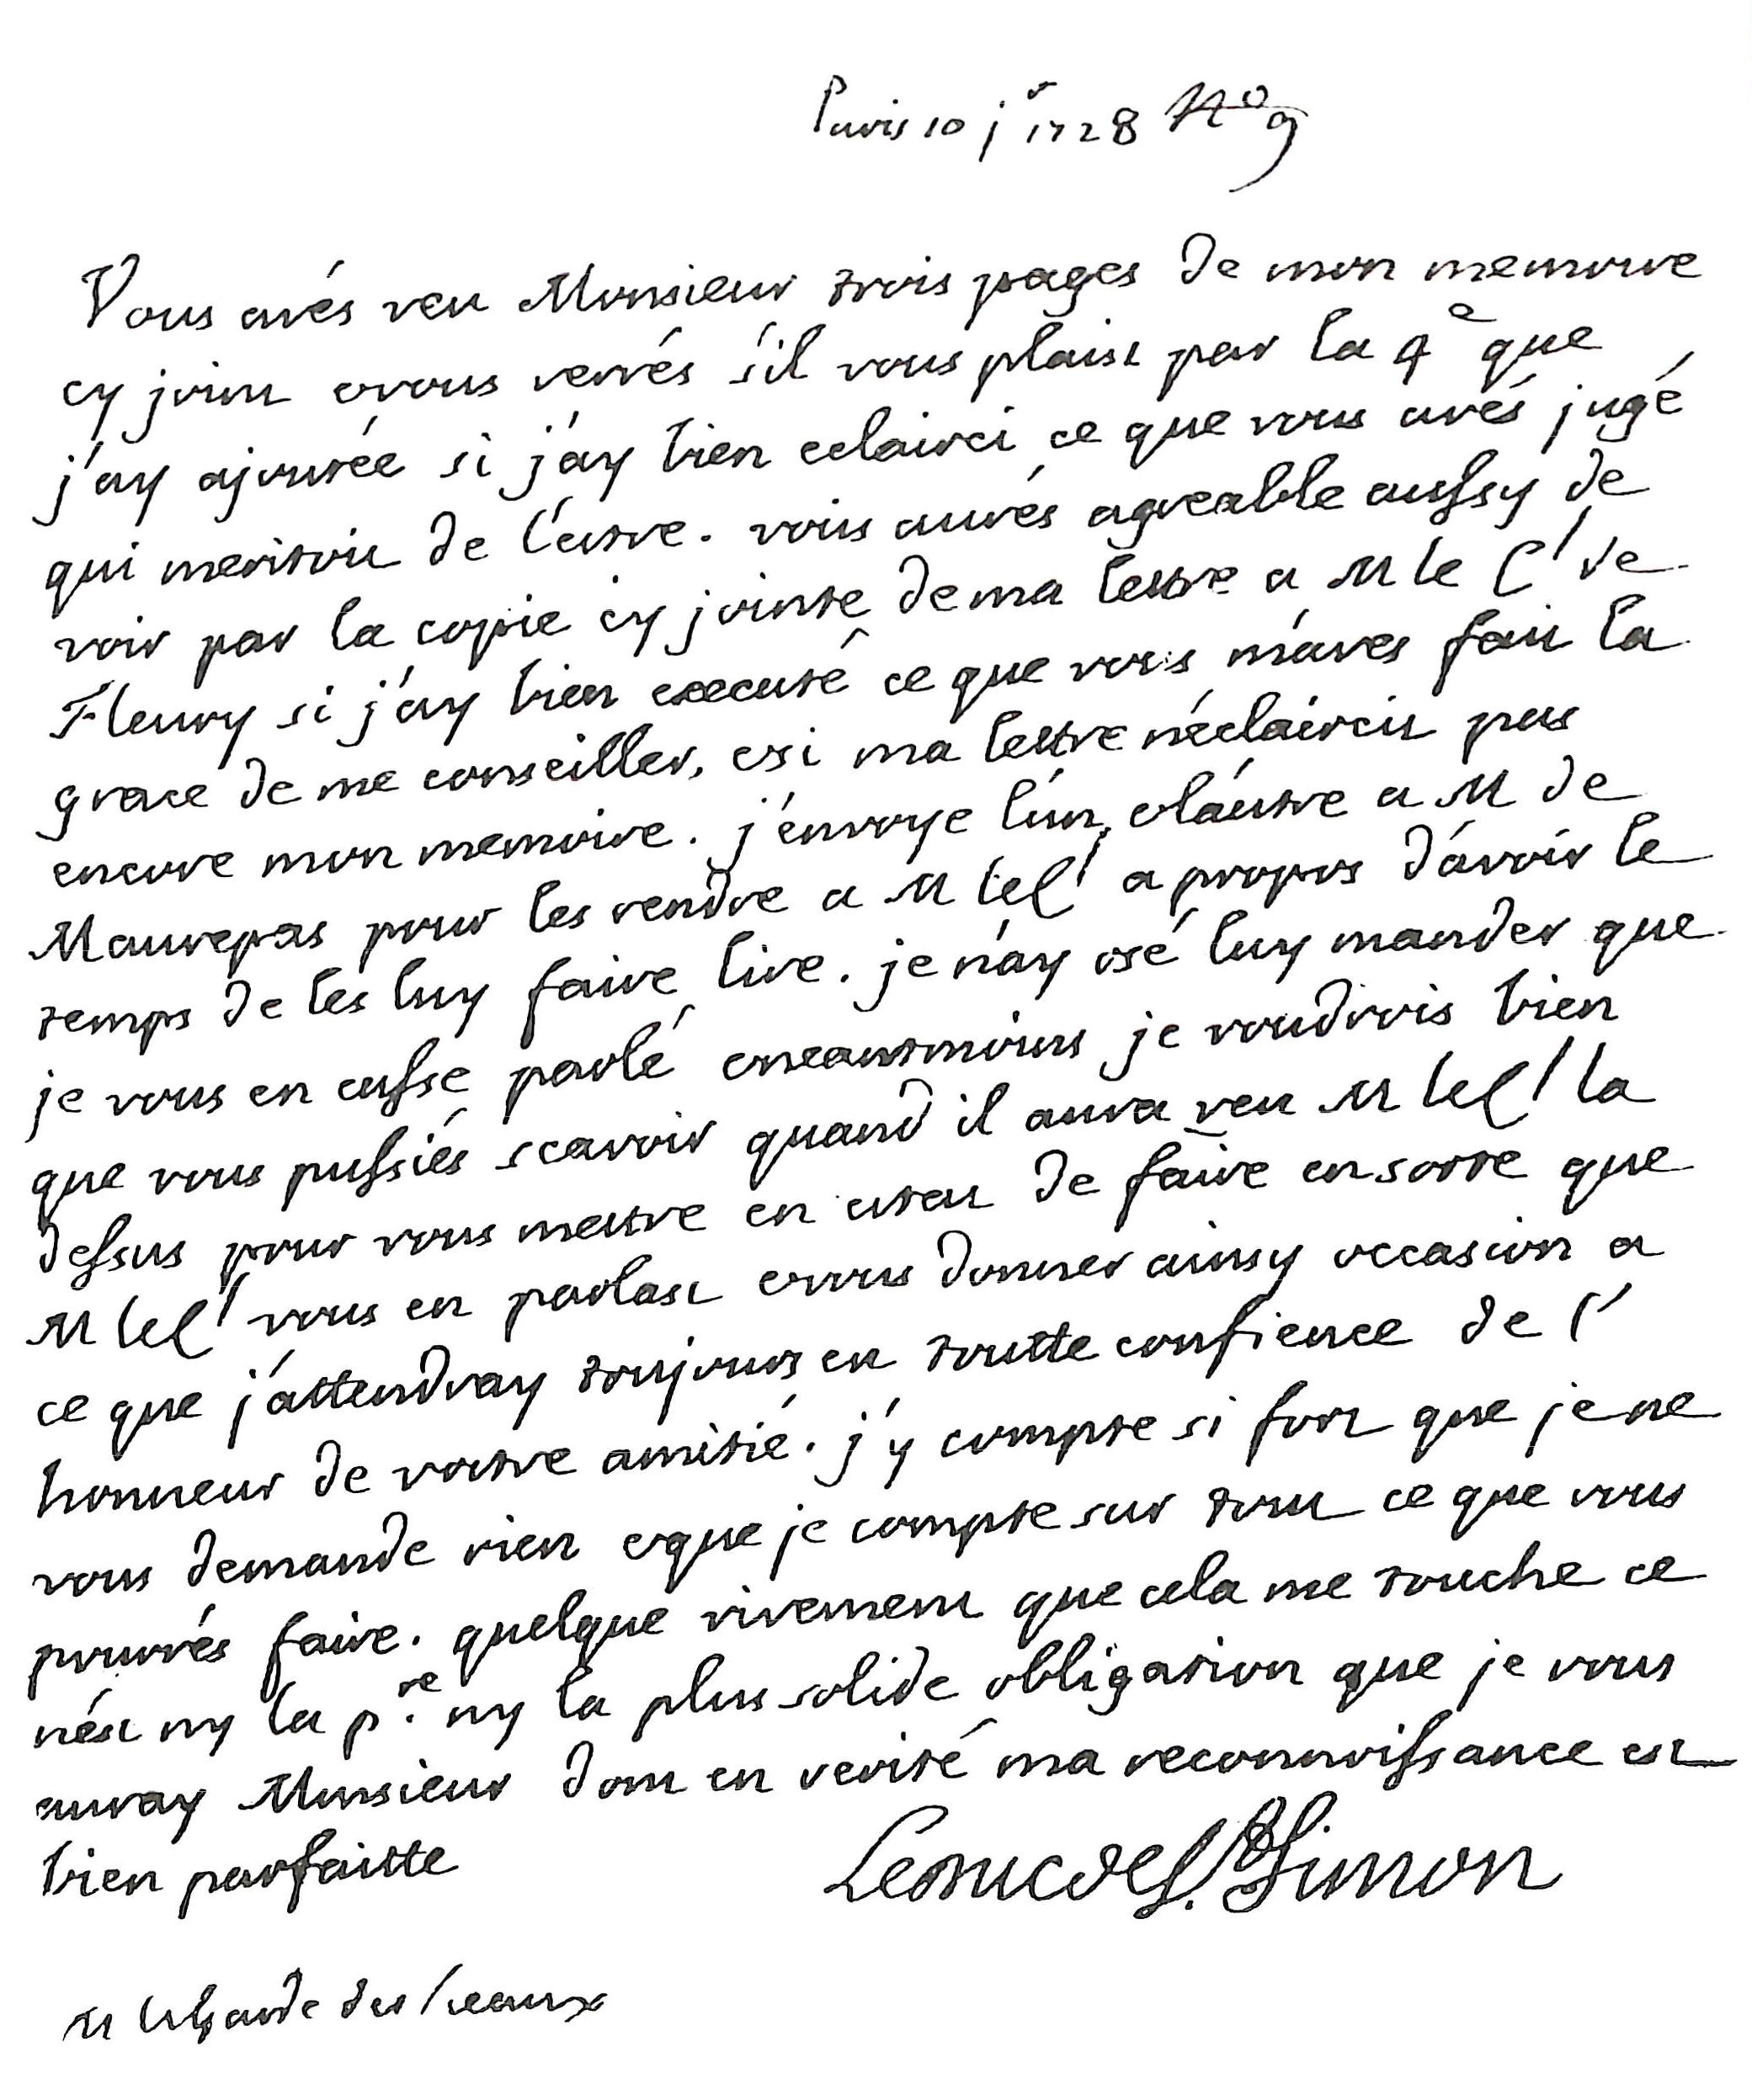 Paris 10 jr 1728 No 9
Vous avés veu Monsieur trois pages de mon memoire
cy joint et vous verrés s'il vous plaist par la 4e que
j'ay ajoutée si j'ay bien eclairci ce que vous avés jugé
qui meritoit de l'estre. vous aurés agreable aussy de
voir par la copie cy jointe de ma lettre a M le Cl de
Fleury si j'ay bien executé ce que vous m'aves fait la
grace de me conseiller, et si ma lettre n'éclaircit pas
encore mon memoire. j'envoye l'un et l'autre a M de
Maurepas pour les rendre a M le Cl a propos d'avoir le
temps de les luy faire lire. je n'ay osé luy mander que
je vous en eusse parlé et neantmoins je voudrois bien
que vous pussiés scavoir quand il aura veu M le Cl la
dessus pour vous mettre en estat de faire en sorte que
M le Cl vous en parlast et vous donner ainsy occasion a
ce que j'attendray toujours en toutte confience de l'
honneur de vostre amitié. j'y compte si fort que je ne
vous demande rien et que je compte sur tout ce que vous
pourrés faire. quelque vivement que cela me touche ce
n'est ny la pre. ny la plus solide obligation que je vous
auray Monsieur dont en verité ma reconnoissance est
bien parfaitte
Le duc de St. Simon
M le Garde des Sceaux